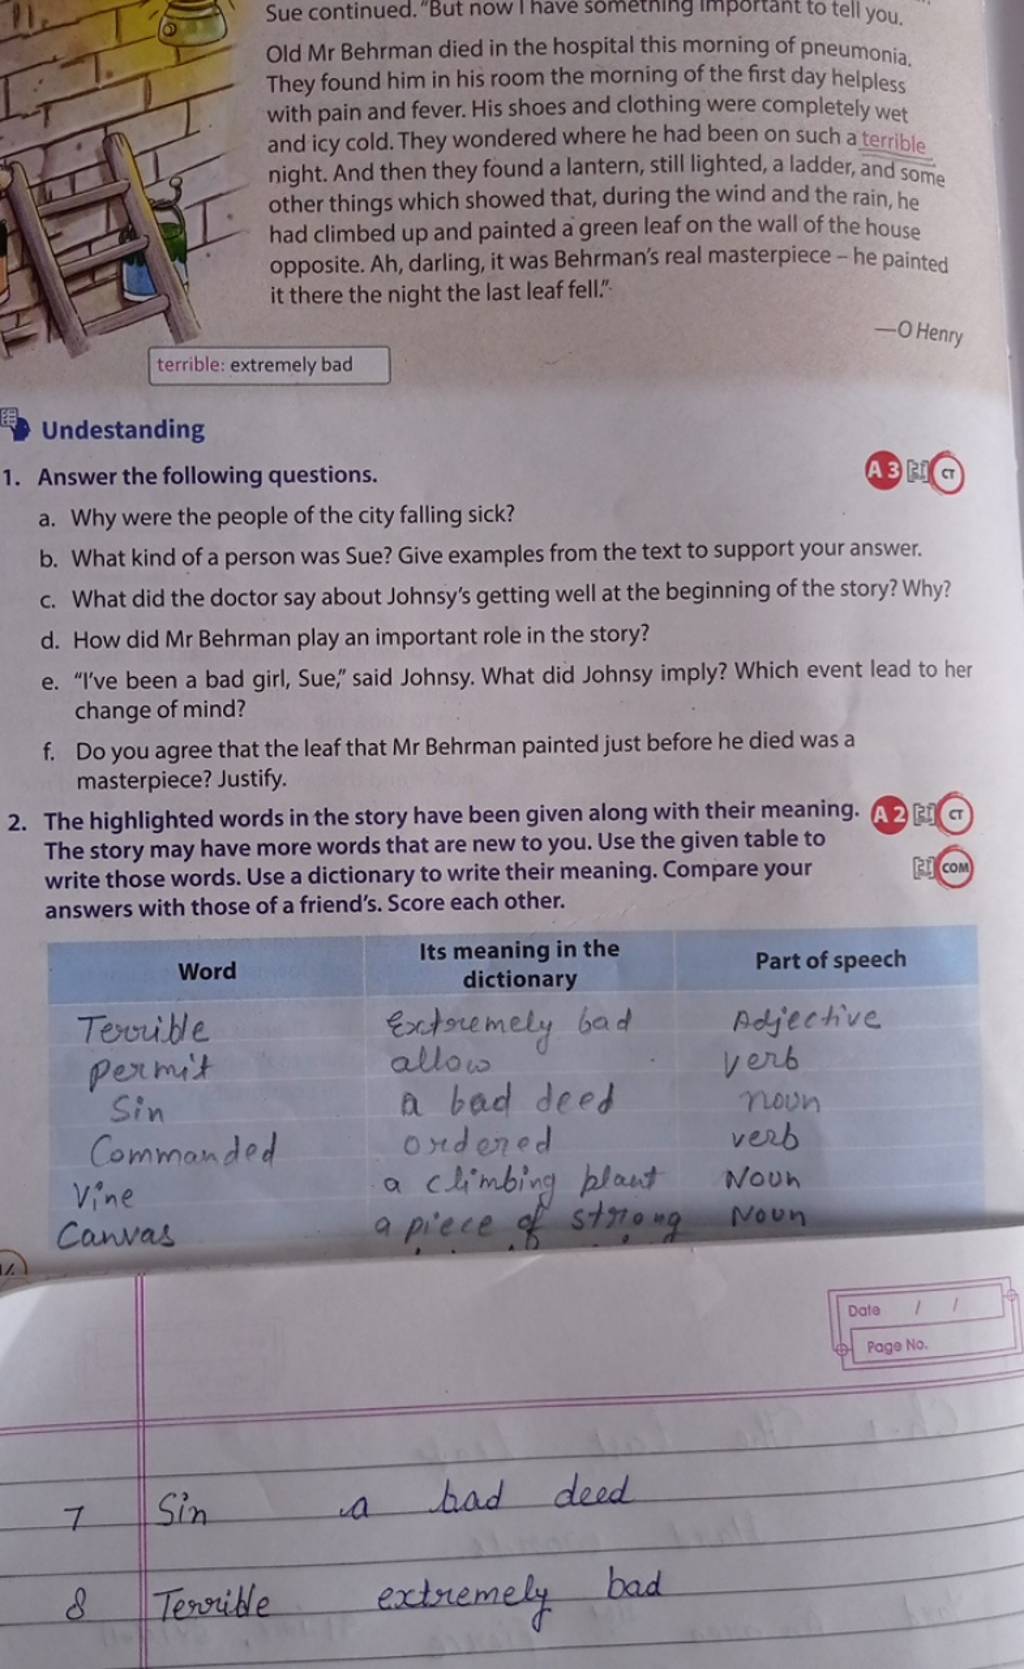 Sue continued. "But now I have something important to tell you.
Old Mr Behrman died in the hospital this morning of pneumonia.
They found him in his room the morning of the first day helpless
with pain and fever. His shoes and clothing were completely wet
and icy cold. They wondered where he had been on such a terrible
night. And then they found a lantern, still lighted, a ladder, and some
other things which showed that, during the wind and the rain, he
had climbed up and painted a green leaf on the wall of the house
opposite. Ah, darling, it was Behrman's real masterpiece – he painted
it there the night the last leaf fell."
—O Henry
terrible: extremely bad
Undestanding
1. Answer the following questions. A 3 CT
a. Why were the people of the city falling sick?
b. What kind of a person was Sue? Give examples from the text to support your answer.
c. What did the doctor say about Johnsy's getting well at the beginning of the story? Why?
d. How did Mr Behrman play an important role in the story?
e. "I've been a bad girl, Sue," said Johnsy. What did Johnsy imply? Which event lead to her
change of mind?
f. Do you agree that the leaf that Mr Behrman painted just before he died was a
masterpiece? Justify.
2. The highlighted words in the story have been given along with their meaning. A 2 CT
The story may have more words that are new to you. Use the given table to
write those words. Use a dictionary to write their meaning. Compare your COM
answers with those of a friend's. Score each other.
Word Its meaning in the dictionary Part of speech
Terrible Extremely bad Adjective
permit allow verb
Sin a bad deed noun
Commanded ordered verb
Vine a climbing plant Noun
Canvas a piece of strong Noun
Date / /
Page No.
7 Sin a bad deed
8 Terrible extremely bad